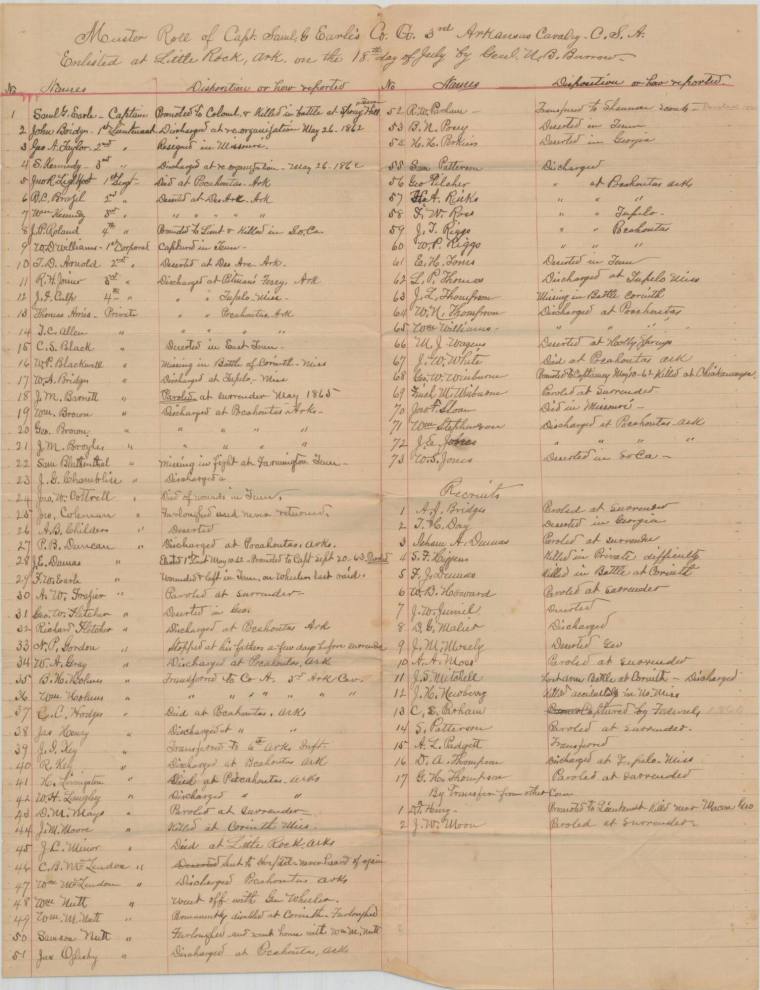 Muster Roll of Capt. Saml. G Earle's Co. G. 3rd Arkansas Cavalry - C. S. A.
Enlisted at Little Rock, Ark. on the 18th day of July by Genl. N. B. Burrow
No Names Disposition or how reported
1 Saml G. Earle - Captain Promoted to Colonl. & Killed in battle at Spring Hill
2 John Boidyn - 1st Lieutenant Discharged at reorganization May 26. 1862
3 Geo A. Taylor 2nd " Resigned in Missouri
4 S. Kennedy 3rd " Discharged at reorganization - May 26. 1862
5 Jno R. Lightfoot 1st Sergt - Died at Pocahontas. Ark
6 B. C. Brazil 2nd " Deserted at Des Ark. Ark
7 Wm Kennedy 3rd " " " " " "
8 J. P. Roland 4th " Promoted to Lieut & Killed in So. Ca.
9 W. D Williams - 1st Corporal Captured in Tenn -
10 T. D. Arnold 2nd " Deserted at Des Arc. Ark.
11 R. H. Joiner 3rd " Discharged at Ferry, Ark
12 J. F. Culp 4th " " " Tupelo. Miss -
13 Thomas Amis - Private " " Pocahontas. Ark
14 T. C. Allen " " " " "
15 C. S. Black " Deserted in East Tenn -
16 W. P. Blackwell " Missing in Battle of Corinth - Miss
17 W. A. Bridges " Discharged at Tupelo. Miss
18 J. M. Barnett " Paroled at surrender May 1865
19 Wm. Brown " Discharged at Pocahontas Arks -
20 Geo. Brown " " " " "
21 J. M. Broyles " " " " "
22 Sam Bluthenthal " Missing in fight at Farmington Tenn -
23 J. G. Chambliss " Discharged
24 Jno. W. Cottrell " Died of wounds in Tenn.
25 Jno. Coleman " Furloughed and never returned.
26 A. B. Childers " Deserted
27 P. B. Duncan " Discharged at Pocahontas, Arks.
28 J. E. Dumas " Elected 1st Lieut May 1862 - Promoted to Capt Sept 20. 63.
29 F. W. Earle " Wounded & left in Tenn. on Wheelers last raid.
30 A. W. Frasier " Paroled at surrender -
31 Geo. W. Fletcher " Deserted in Geo.
32 Richard Fletcher " Discharged at Pocahontas Ark
33 N. P. Gordon " Stopped at his fathers a few days before surrender
34 W. A. Gray " Discharged at Pocahontas, Ark
35 B. H. Holmes " Transferred to Co. A. 3rd Ark Cav.
36 Wm Holmes " " " " " "
37 C. C. Hodges " Died at Pocahontas, Arks
38 Jas Henry " Discharged at " "
39 J. D. Key " Transferred to 6th Arks Inft.
40 R. Key " Discharged at Pocahontas Ark
41 H. Livingston " Died at Pocahontas. Arks
42 W. H. Langley " Discharged " "
43 D. M. Mays " Paroled at Surrender -
44 J. M. Moore " Killed at Corinth Miss.
45 J. C. Minor " Died at Little Rock, Arks
46 C. B. McLendon " Deserted Sent to Hospital - never heard of again
47 Wm McLendon " Discharged Pocahontas Arks
48 Wm Nutt " Went off with Gen Wheeler.
49 Wm. M. Nutt " Permanently disabled at Corinth. Furloughed
50 Samson Nutt " Furloughed and went home with Wm M. Nutt
51 Jas Oglesby " Discharged at Pocahontas, Arks
No Names Disposition or how reported.
52 R. W. Parham - Transferred to Shannon scouts -
53 B. N. Posey Deserted in Tenn
54 H. H. Deserted in Georgia
55 Patterson Discharged
56 Geo Pilcher " at Pocahontas Arks
57 A. Ricks " " "
58 F. W. Ross " " Tupelo -
59 J. T. Riggs " " Pocahontas
60 W. P. Riggs " " "
61 E. H. Jones Deserted in Tenn
62 L. P. Thomas Discharged at Tupelo Miss
63 J. L. Thompson Missing in Battle Corinth
64 W. N. Thompson Discharged at Pocahontas
65 Wm Williams - " " " "
66 M. J. Wagens Deserted at Holly Springs
67 J. W. White Died at Pocahontas ark
68 Geo. W. Winburn Promoted to Captaincy May 20-62 Killed at Chickamauga
69 Hugh M. Wilburn Paroled at Surrender
70 Jno F. Sloan Died in Missouri -
71 Wm Stephenson Discharged at Pocahontas ark
72 J. E. Jones " " " "
73 W. S. Jones Deserted in So Ca -
Recruits
1 A. J. Bridges Paroled at Surrender
2 T. H. Day Deserted in Georgia
3 Isham A. Dumas Paroled at surrender
4 S. F. Higgins Killed in Private difficulty
5 F. J. Dumas Killed in Battle at Corinth
6 W. B. Howard Paroled at Surrender
7 J. W. Deserted
8 D. G. Malier Discharged
9 J. M. Mosely Deserted Geo
10 A. A. Moss Paroled at Surrender
11 J. S. Mitchell Lost arm Battle at Corinth - Discharged
12 J. H. Newberg Killed accidently in No. Miss
13 C. E. Parham Captured by Federals
14 S. Patterson Paroled at Surrender.
15 A. L. Padgett Transferred
16 D. A. Thompson Discharged at Tupelo Miss
17 G. H. Thompson Paroled at Surrender
By Transfer from other Com
1 Henry - Promoted to Lieutenant Killed near Macon Geo
2 J. W. Moon Paroled at Surrender -